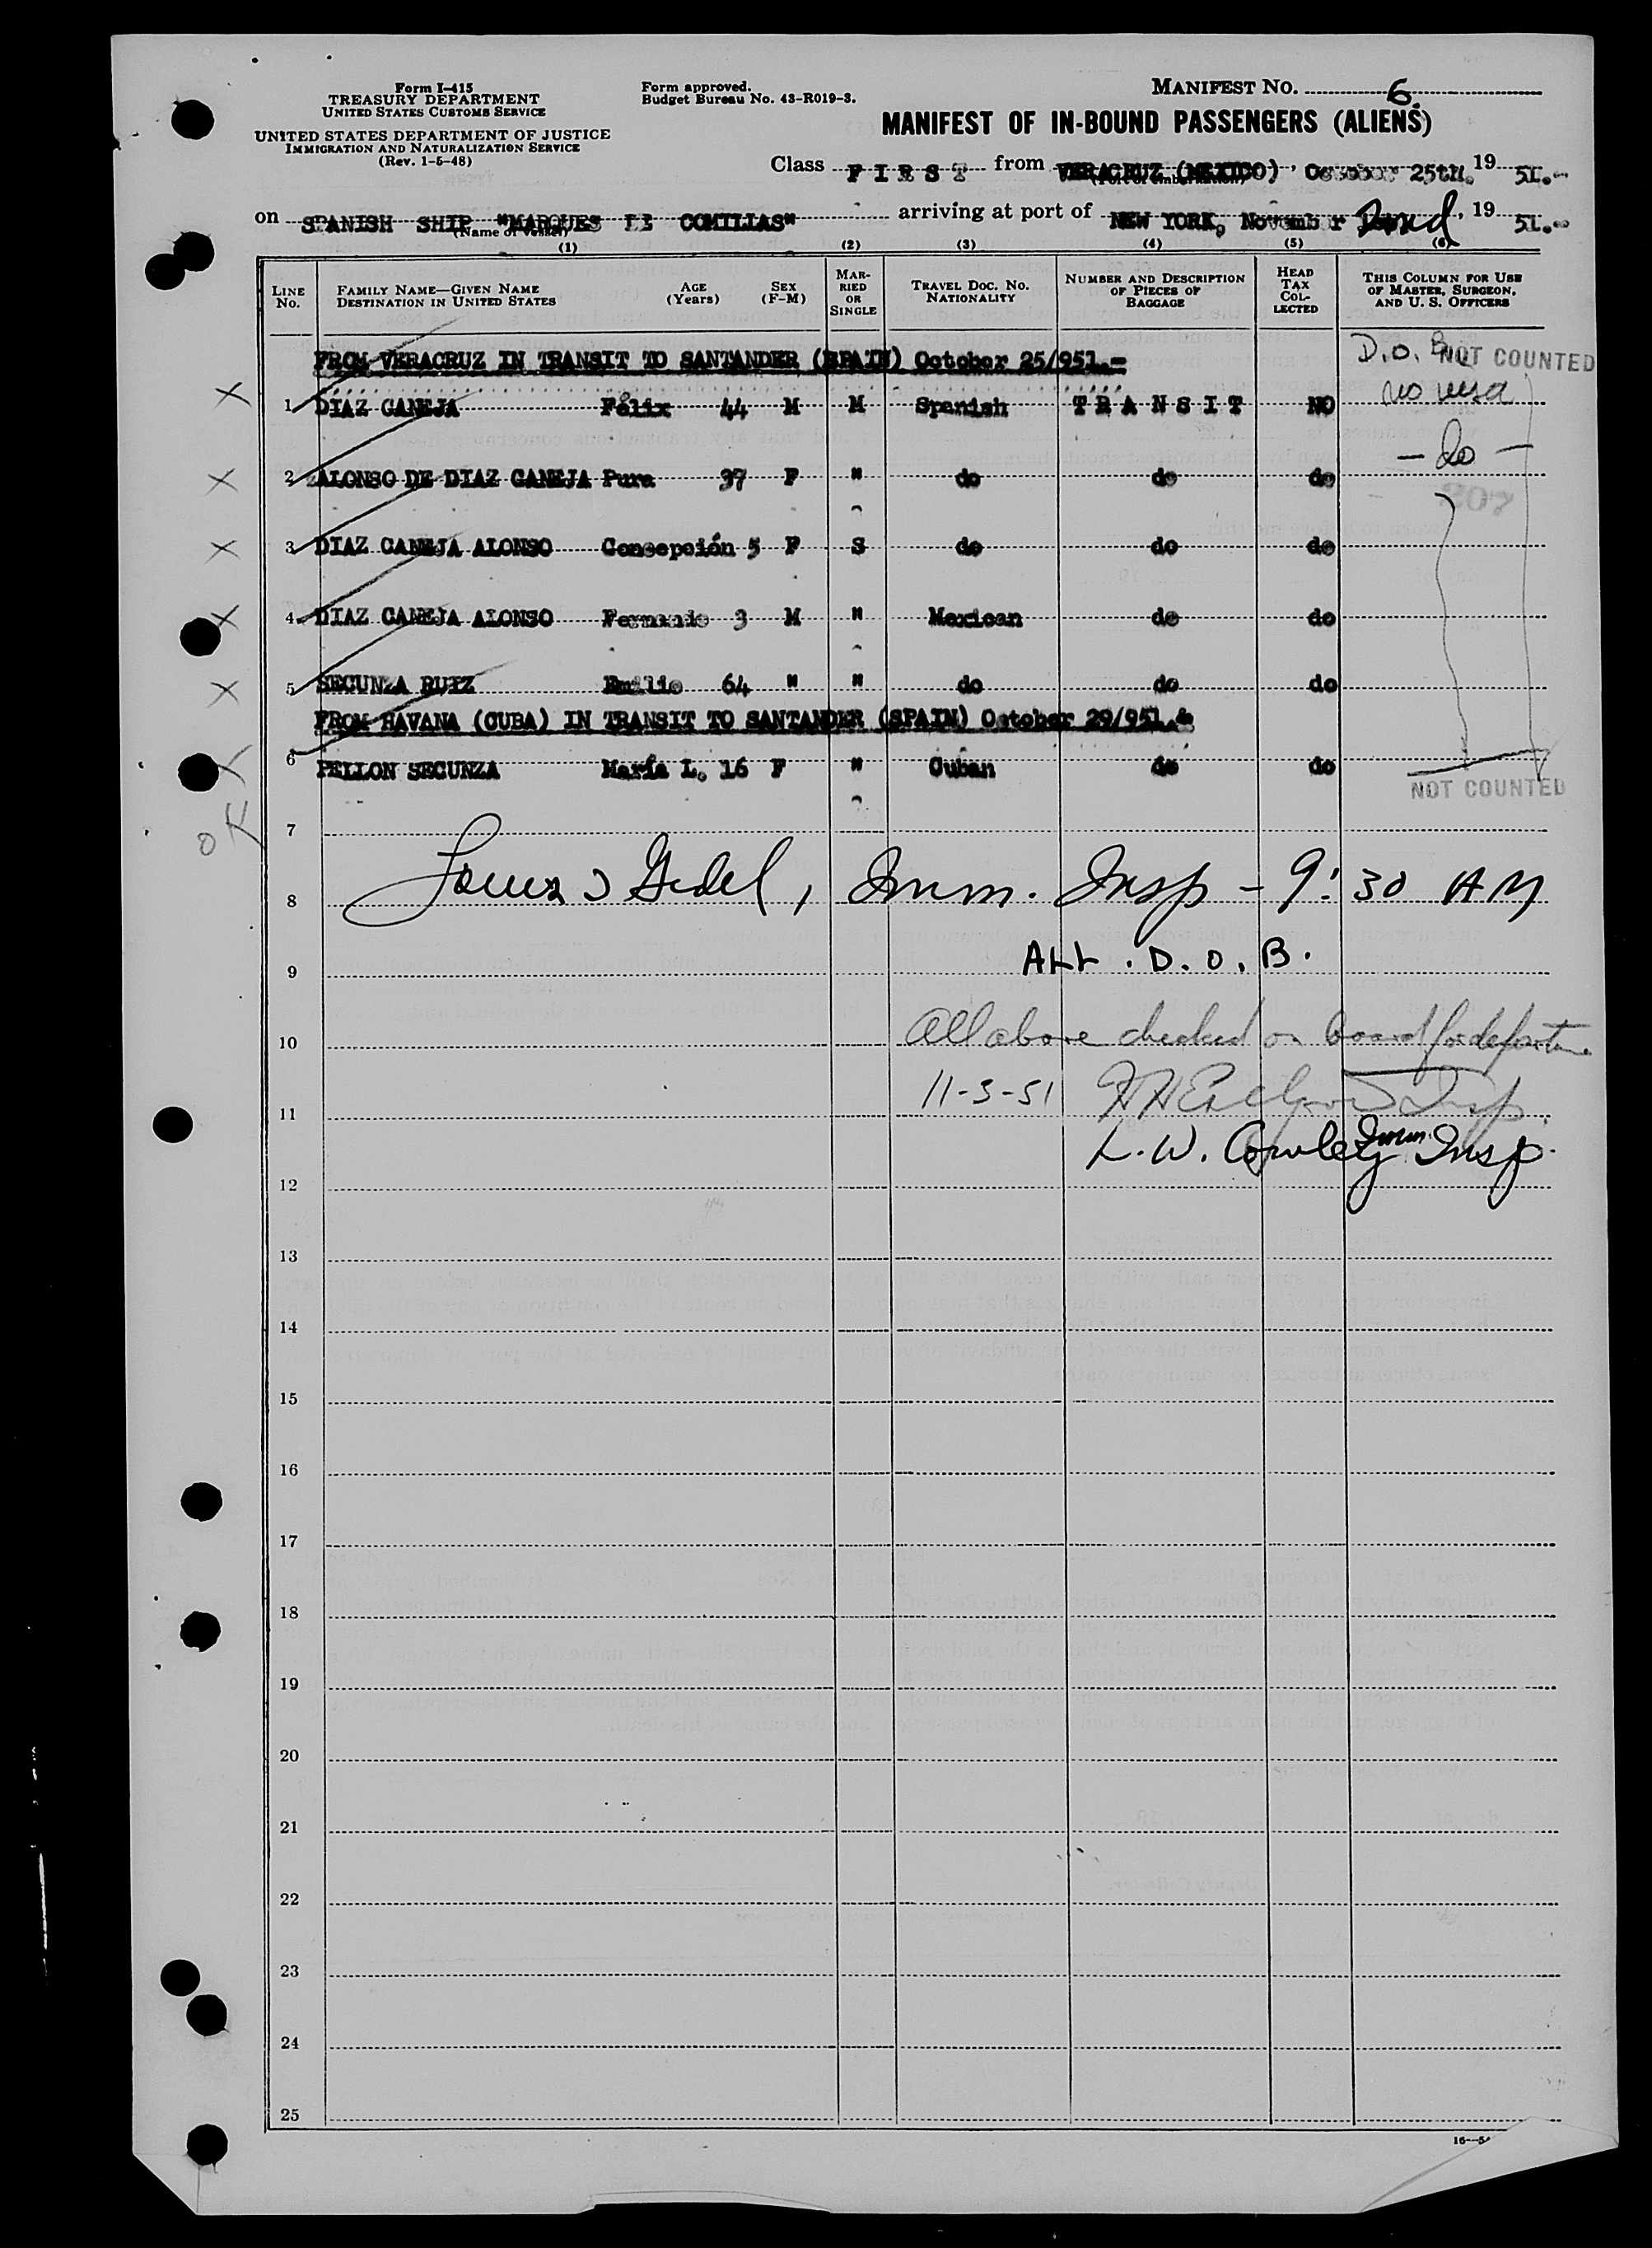 Form I-415
TREASURY DEPARTMENT
UNITED STATES CUSTOMS SERVICE
UNITED STATES DEPARTMENT OF JUSTICE
IMMIGRATION AND NATURALIZATION SERVICE
(Rev. 1-5-48)
Form approved.
Budget Bureau No. 43-R019-3.
MANIFEST NO. 6.
MANIFEST OF IN-BOUND PASSENGERS (ALIENS)
Class F I R S T from VERACRUZ (MEXICO), October 25th. 19 51.-
on SPANISH SHIP "MARQUES DE COMILIAS" arriving at port of NEW YORK, November 2nd, 19 51.-
(Name of vessel)
(1) (2) (3) (4) (5) (6)
LINE No. FAMILY NAME—GIVEN NAME DESTINATION IN UNITED STATES AGE (Years) SEX (F-M) MARRIED OR SINGLE TRAVEL DOC. NO. NATIONALITY NUMBER AND DESCRIPTION OF PIECES OF BAGGAGE HEAD TAX COLLECTED THIS COLUMN FOR USE OF MASTER, SURGEON, AND U. S. OFFICERS
FROM VERACRUZ IN TRANSIT TO SANTANDER (SPAIN) October 25/951.- D.O.B. NOT COUNTED
1 DÍAZ CANEJA Félix 44 M M Spanish T R A N S I T NO no visa
2 ALONSO DE DIAZ CANEJA Pura 37 F " do do do — do —
3 DIAZ CANEJA ALONSO Concepción 5 F S do do do
4 DIAZ CANEJA ALONSO Fernando 3 M " Mexican do do
5 SECUNZA RUIZ Emilio 64 " " do do do
FROM HAVANA (CUBA) IN TRANSIT TO SANTANDER (SPAIN) October 29/951.
6 PELLON SECUNZA María L. 16 F " Cuban do do
NOT COUNTED
OK
7
8 Imm. Insp - 9:30 AM
9 ALL. D. O. B.
10 All above checked on board for departure
11 11-3-51 Insp.
L. W. Cowley Imm. Insp.
12
13
14
15
16
17
18
19
20
21
22
23
24
25